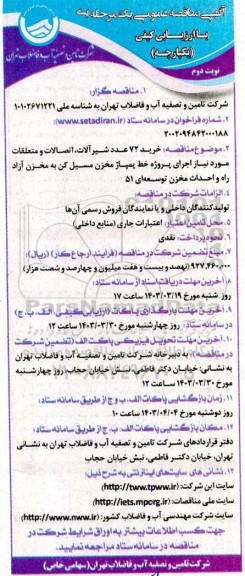 آگهی مناقصه عمومی یک مرحله ای
با ارزیابی کیفی
(یکپارچه)
شرکت تامین و تصفیه آب و فاضلاب تهران
نوبت دوم
۱. مناقصه گزار:
شرکت تامین و تصفیه آب و فاضلاب تهران به شناسه ملی ۱۰۱۰۲۶۷۱۲۲۱
۲. شماره فراخوان در سامانه ستاد: (www.setadiran.ir)
۲۰۰۲۰۹۴۸۴۲۰۰۰۱۸۸
۳. موضوع مناقصه: خرید ۷۲ عدد شیرآلات، اتصالات و متعلقات
مورد نیاز اجرای پروژه خط پمپاژ مخزن مسیل کن به مخزن آزاد
راه و احداث مخزن توسعه‌ای ۵۱
۴. الزامات شرکت در مناقصه:
تولیدکنندگان داخلی و یا نمایندگان فروش رسمی آن‌ها
۵. محل تامین اعتبار: اعتبارات جاری (منابع داخلی)
۶. نحوه پرداخت: نقدی
۷. مبلغ تضمین شرکت در مناقصه (فرایند ارجاع کار) (ریال):
۹۲۷,۴۶۰,۰۰۰ (نهصد و بیست و هفت میلیون و چهارصد و شصت هزار)
۸. آخرین مهلت دریافت اسناد از سامانه ستاد:
روز شنبه مورخ ۱۴۰۳/۰۳/۱۹ ساعت ۱۷
۹. آخرین مهلت بارگذاری پاکات (ارزیابی کیفی، الف، ب، ج)
در سامانه ستاد: روز چهارشنبه مورخ ۱۴۰۳/۰۳/۳۰ ساعت ۱۲
۱۰. آخرین مهلت تحویل فیزیکی پاکت الف (تضمین شرکت
در مناقصه): به دبیرخانه شرکت تامین و تصفیه آب و فاضلاب تهران
به نشانی: خیابان دکتر فاطمی، نبش خیابان حجاب، روز چهارشنبه
مورخ ۱۴۰۳/۰۳/۳۰ ساعت ۱۲
۱۱. زمان بازگشایی پاکات الف، ب و ج از طریق سامانه ستاد:
روز دوشنبه مورخ ۱۴۰۳/۰۴/۰۴ ساعت ۱۰
۱۲. مکان بازگشایی پاکات الف، ب، ج از طریق سامانه ستاد:
دفتر قراردادهای شرکت تامین و تصفیه آب و فاضلاب تهران به نشانی
تهران، خیابان دکتر فاطمی، نبش خیابان حجاب
۱۳. نشانی های سایت‌های اینترنتی به شرح ذیل:
سایت این شرکت: (http://tww.tpww.ir)
سایت ملی مناقصات: (http://iets.mporg.ir)
سایت شرکت مهندسی آب و فاضلاب کشور: (http://www.nww.ir)
جهت کسب اطلاعات بیشتر به اوراق شرایط شرکت در
مناقصه در سامانه ستاد مراجعه نمایید.
شرکت تامین و تصفیه آب و فاضلاب تهران (سهامی خاص)